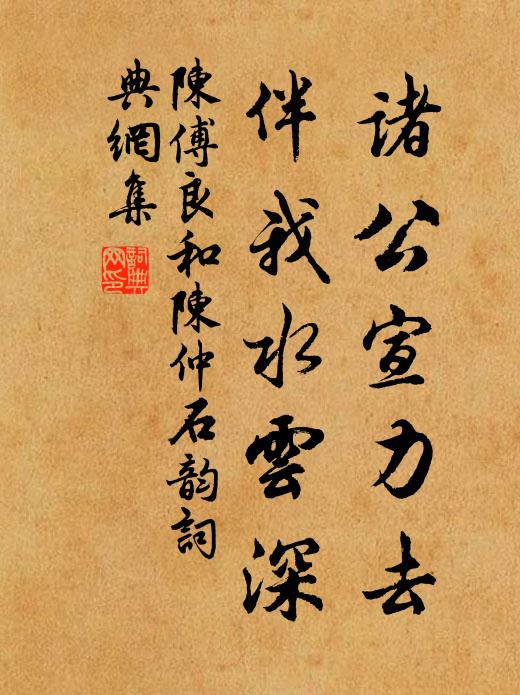 諸公宣力去
伴我水雲深
陳傅良和陳仲石韵詞
典網集
詞典
网印